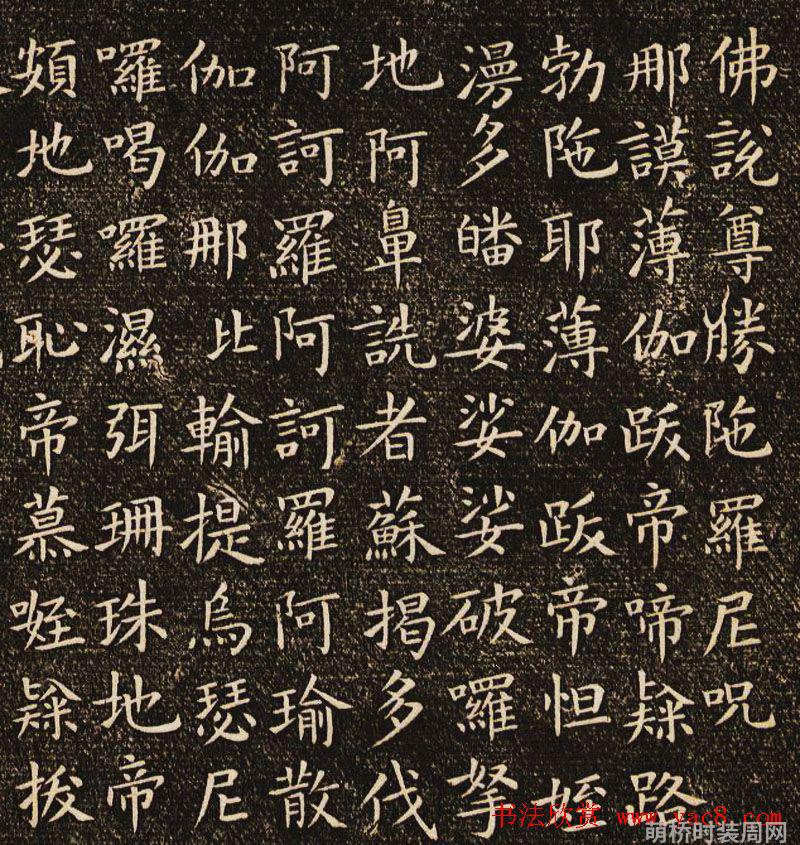 佛說尊勝陁羅尼呪
那謨薄伽跋帝啼隸路
勃陁耶薄伽跋帝怛姪
漫多皤婆娑娑破囉拏
地阿鼻詵者蘇揭多伐
阿訶羅阿訶羅阿瑜散
伽伽那比輸提烏瑟尼
囉喝囉濕弭珊珠地帝
頞地瑟恥帝慕隸拔
书法欣赏 www.yac8.com
萌桥时装周网